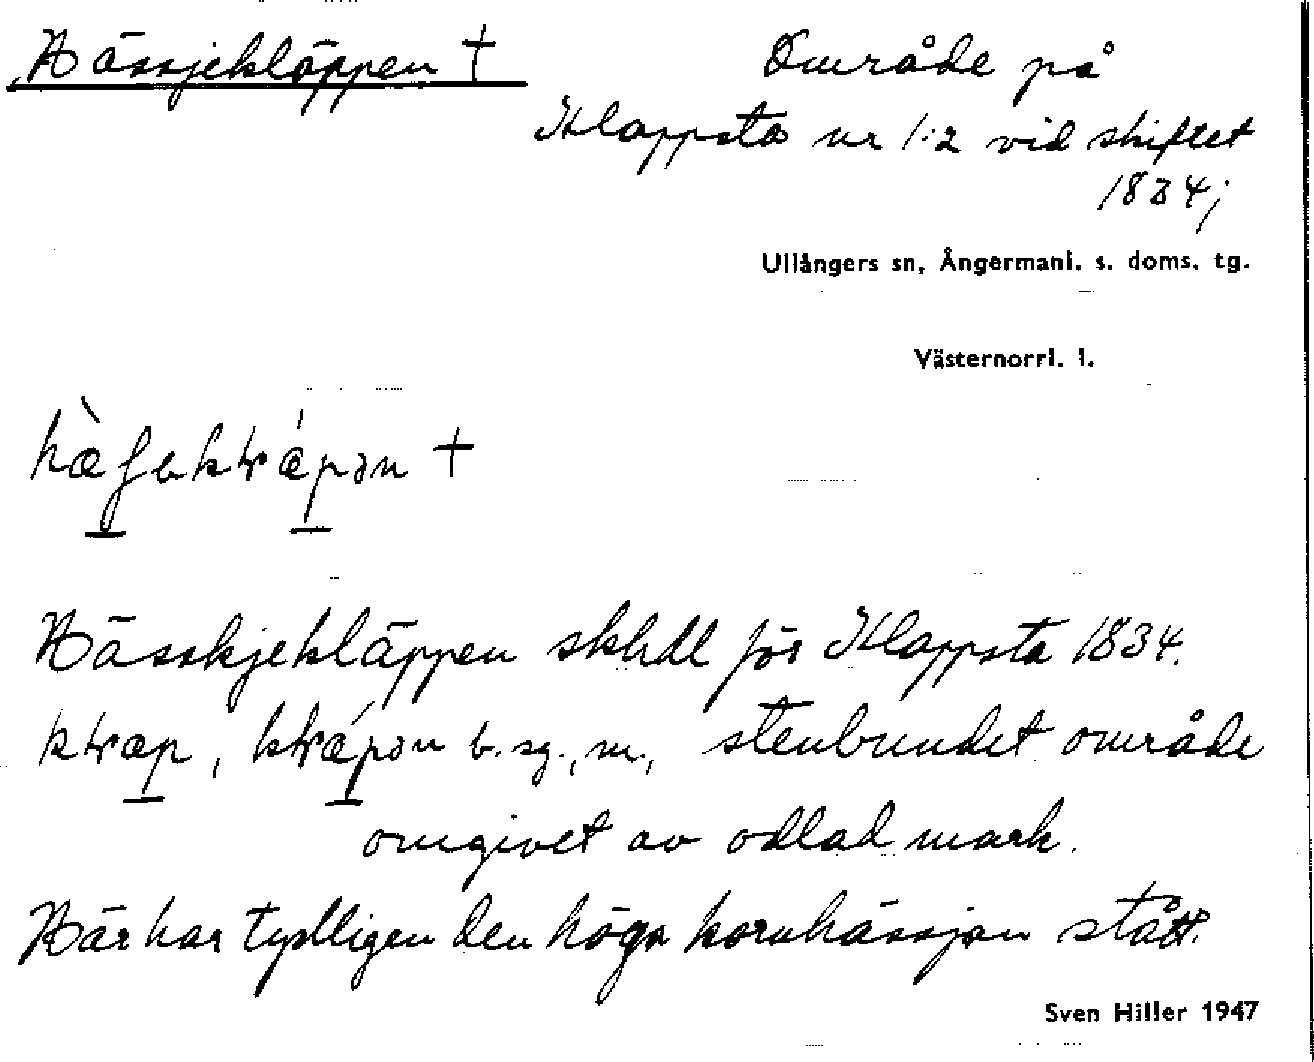 Hässjekläppen † Område på
Klappsta nr 1:2 vid skiftet
1834;
Ullångers sn, Ångermanl. s. doms. tg.
Västernorrl. l.
†
Hässkjekläppen skhdl för Klappsta 1834.
b. sg., m., stenbundet område
omgivet av odlad mark.
Här har tydligen den höga kornhässjan stått.
Sven Hiller 1947